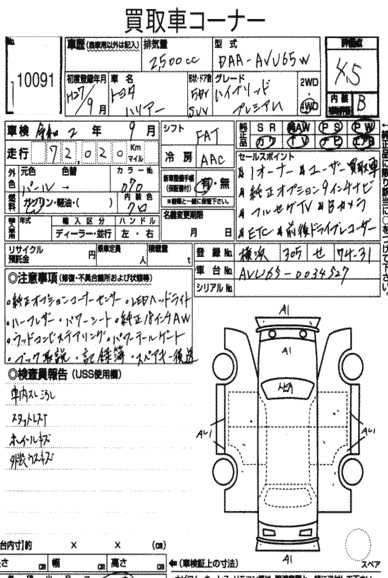 買取車コーナー
No. 10091
車歴(自家用以外は記入) 排気量 2500cc 型式 DAA-AVU65W 評価点 4.5
初度登録年月 H27/9月 車名 トヨタ ハリアー 形状・ドア数 5DW SUV グレード ハイブリッド プレミアム 2WD 4WD 内装 B
車検 令和2年9月 シフト FAT 純正品 SR AW PS PW
走行 72,020 Km マイル 冷房 AAC カワ TV ナビ
セールスポイント
外色 元色 パール 色替 カラーNo. 070
燃料 ガソリン・軽油・( ) 内装色 クロ
有・無
・1オーナー・ユーザー買取車
・純正オプション9インチナビ
・フルセグTV・Bカメラ
・ETC・前後ドライブレコーダー
名義変更期限 月 日
輸入車用 年式 輸入区分 ディーラー・並行 ハンドル 左・右
リサイクル預託金 円 乗車定員 人 積載量 t
登録No. 横浜 305 せ 74-31
車台No. AVU65-0034527
シリアルNo.
◎注意事項(修復・不具合箇所および状態等)
・純正オプションコーナーセンサー・LEDヘッドライト
・ハーフレザー・パワーシート・純正18インチAW
・ウッドコンビステアリング・パワーテールゲート
・ブック取説・記録簿・スペアキー後送
◎検査員報告(USS使用欄)
車内スレ汚し
スカットレスト
ホイールキズ
外装ウスキズ
A1
AU1
AU1
A1
スペア
台内寸)約 × × (㎝)
長さ ㎝ 幅 ㎝ 高さ ㎝ ←(車検証上の寸法)